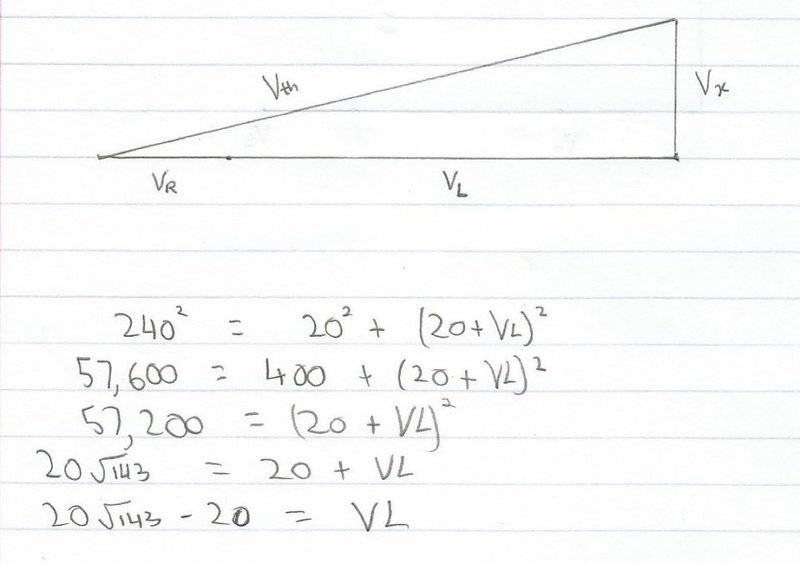 Vth
Vx
VR
VL
240² = 20² + (20+VL)²
57,600 = 400 + (20 + VL)²
57,200 = (20 + VL)²
20√143 = 20 + VL
20√143 - 20 = VL